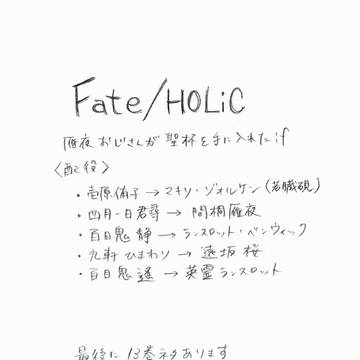 Fate/HOLiC
雁夜おじさんが聖杯を手に入れたif
〈配役〉
・壱原侑子→マキリ・ゾォルケン(若臓硯)
・四月一日君尋→間桐雁夜
・百目鬼静→ランスロット・ベンウィック
・九軒ひまわり→遠坂桜
・百目鬼遙→英霊ランスロット
最後に13巻ネタあります